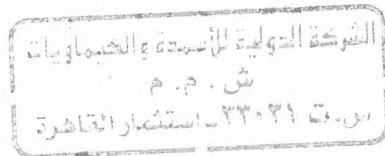 الشركة الدولية للأسمدة والكيماويات
ش . م . م
س.ت ٣٣٠٣١ - استثمار القاهرة